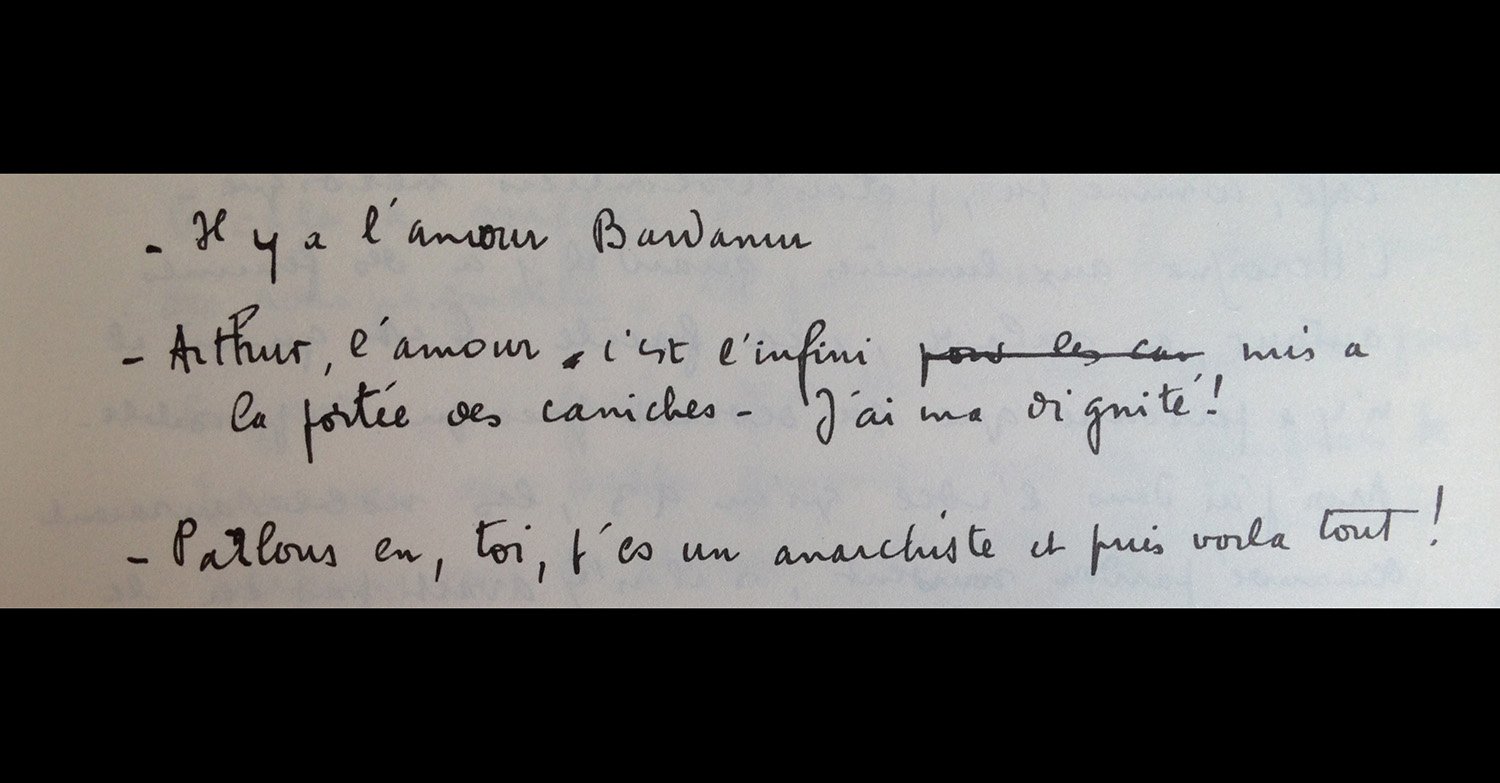 - Il y a l'amour Bardamu
- Arthur, l'amour c'est l'infini pour les can mis a
la portée des caniches - J'ai ma dignité!
- Parlons en, toi, t'es un anarchiste et puis voila tout!